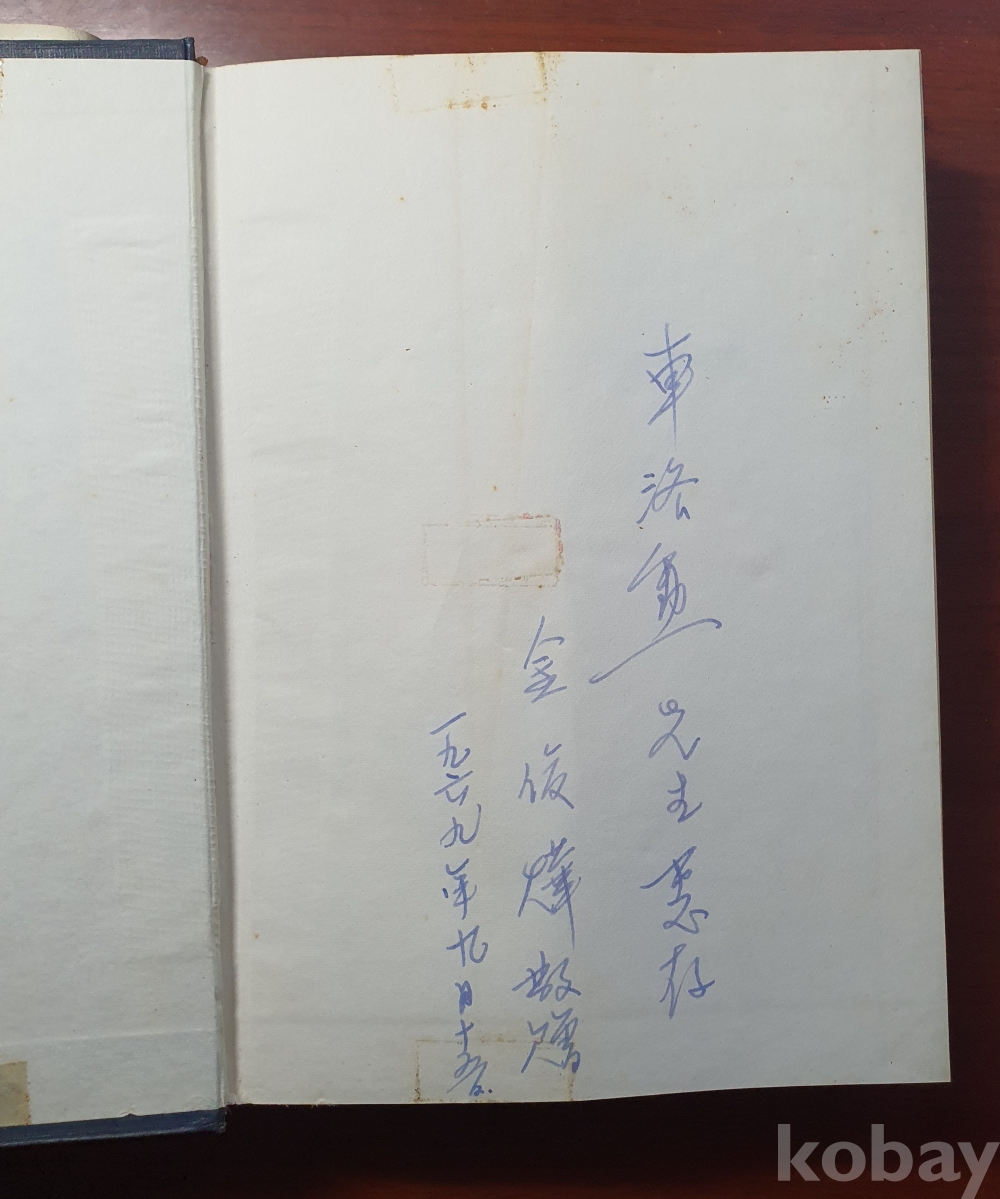 車洛勳先生惠存
金俊燁敬贈
一九六九年九月十五日
kobay